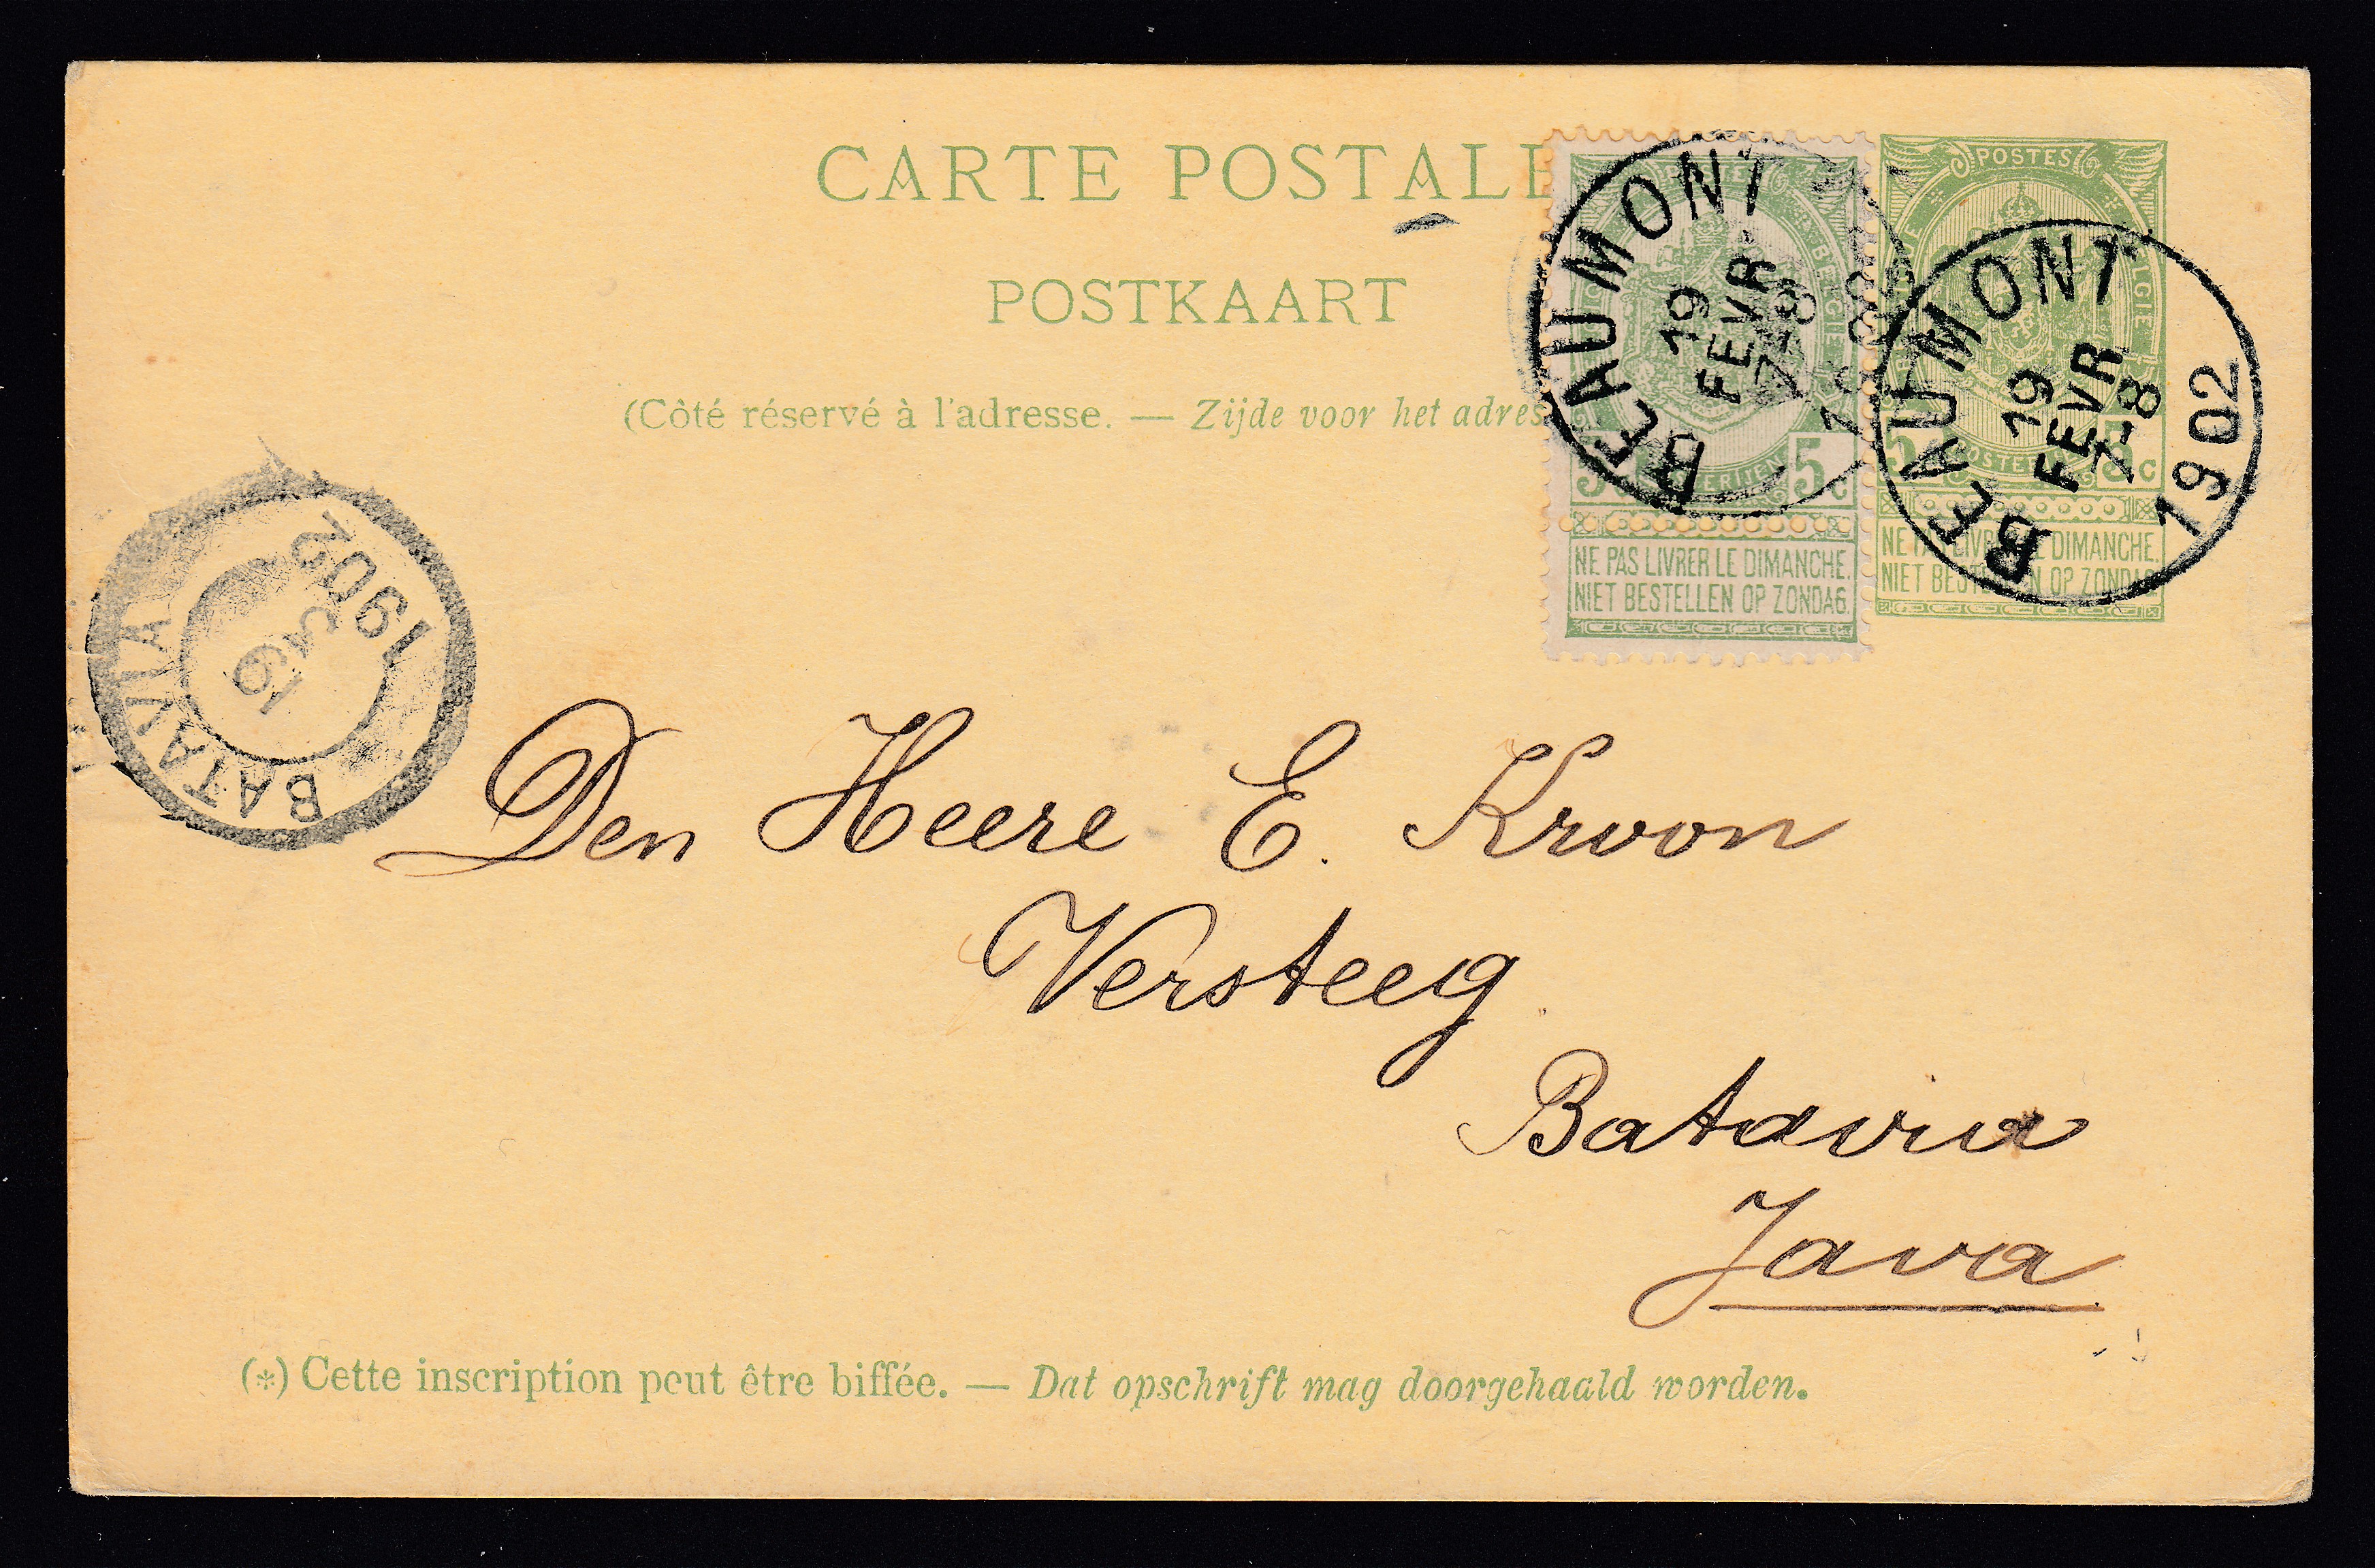 CARTE POSTALE
POSTKAART
(Côté réservé à l'adresse. — Zijde voor het adres
POSTES
BELGIE
5c
NE PAS LIVRER LE DIMANCHE.
NIET BESTELLEN OP ZONDAG.
BEAUMONT
19
FEVR
7-8
POSTES
5c
NE PAS LIVRER LE DIMANCHE.
NIET BESTELLEN OP ZONDAG
BEAUMONT
19
FEVR
7-8
1902
BATAVIA
19 3
1902
Den Heere E. Kroon
Versteeg
Batavia
Java
(*) Cette inscription peut être biffée. — Dat opschrift mag doorgehaald worden.